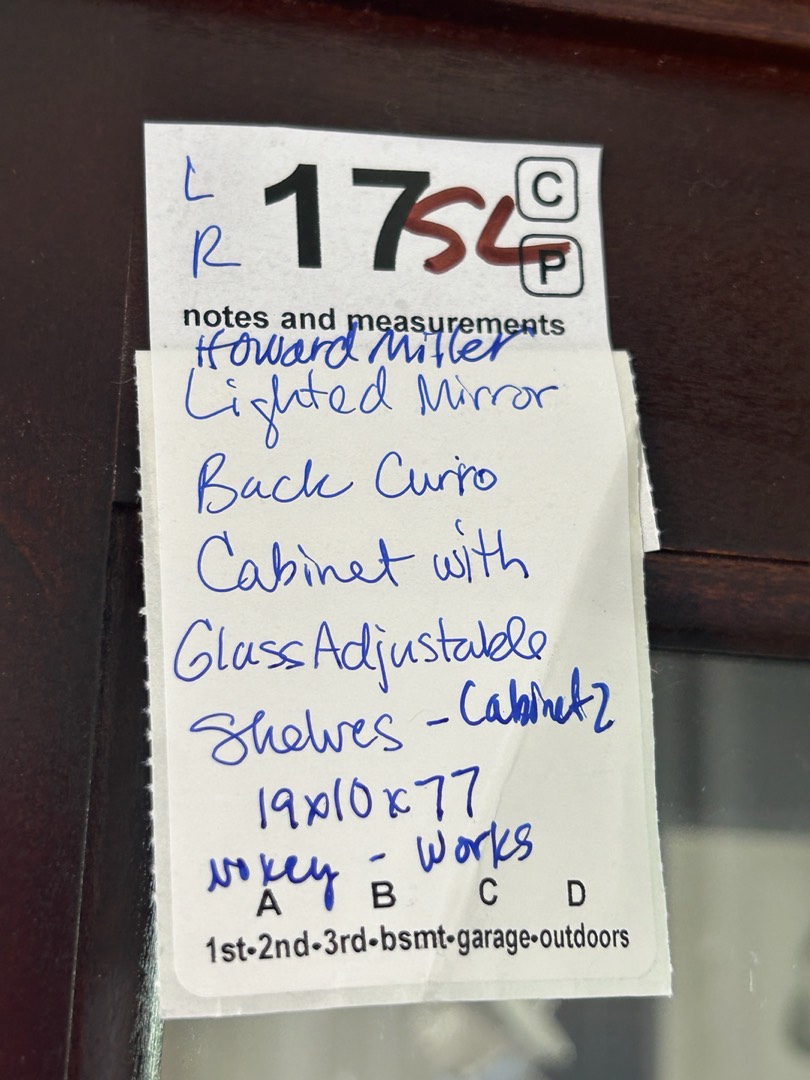 L 17 SL C
R P
notes and measurements
Howard Miller
Lighted Mirror
Back Curio
Cabinet with
Glass Adjustable
Shelves - Cabinet 2
19x10x77
No key - Works
A B C D
1st•2nd•3rd•bsmt•garage•outdoors